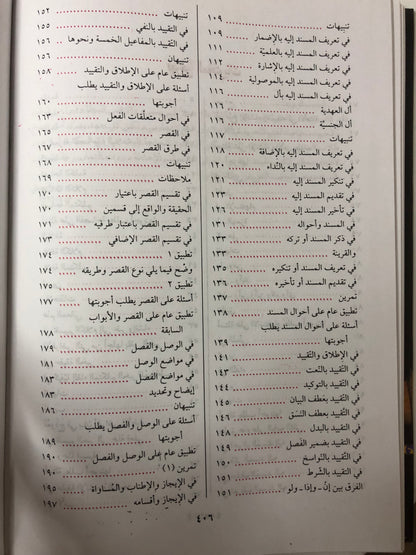 تنبيهات ١٠٩
في تعريف المسند إليه بالإضمار ١٠٩
في تعريف المسند إليه بالعلميّة ١١١
في تعريف المسند إليه بالإشارة ١١٢
في تعريف المسند إليه بالموصولية ١١٤
في تعريف المسند إليه بأل ١١٦
أل العهدية ١١٦
أل الجنسيّة ١١٦
تنبيهات ١١٧
في تعريف المسند إليه بالإضافة ١١٨
في تعريف المسند إليه بالنّداء ١٢٠
في تنكير المسند إليه ١٢١
في تقديم المسند إليه ١٢٣
في تأخير المسند إليه ١٣١
في المسند وأحواله ١٣١
في ذكر المسند أو تركه ١٣٣
والقرينة ١٣٣
في تعريف المسند أو تنكيره ١٣٥
في تقديم المسند أو تأخيره ١٣٦
تمرين ١٣٧
تطبيق عام على أحوال المسند ١٣٨
أسئلة على أحوال المسند يطلب
أجوبتها ١٣٩
في الإطلاق والتّقييد ١٤١
في التقييد بالنّعت ١٤٢
في التقييد بالتوكيد ١٤٤
في التقييد بعطف البيان ١٤٥
في التّقييد بعطف النّسَق ١٤٦
في التقييد بالبدل ١٤٨
في التّقييد بضمير الفصل ١٤٩
في التّقييد بالنّواسخ ١٥٠
في التقييد بالشّرط ١٥١
الفرق بين إنْ ـ وإذا ـ ولو ١٥١
تنبيهات ١٥٢
في التّقييد بالنّفي ١٥٥
في التقييد بالمفاعيل الخمسة ونحوها ١٥٦
تنبيهان ١٥٦
تطبيق عام على الإطلاق والتقييد ١٥٨
أسئلة على الإطلاق والتقييد يطلب
أجوبتها ١٦٠
في أحوال متعلّقات الفعل ١٦٣
في القصر ١٦٥
في طرق القصر ١٦٧
تنبيهات ١٦٨
ملاحظات ١٦٩
في تقسيم القصر باعتبار ١٧٠
الحقيقة والواقع إلى قسمين ١٧٠
في تقسيم القصر باعتبار طرفيه ١٧١
في تقسيم القصر الإضافي ١٧٣
تطبيق ١ ١٧٤
وضّح فيما يلي نوع القصر وطريقه ١٧٤
تطبيق ٢ ١٧٥
أسئلة على القصر يطلب أجوبتها ١٧٧
تطبيق عام على القصر والأبواب
السابقة ١٧٨
في الوصل والفصل ١٧٩
في مواضع الوصل ١٨١
في مواضع الفصل ١٨٣
إيضاح وتحديد ١٨٣
تنبيهان ١٨٦
أسئلة على الوصل والفصل يطلب
أجوبتها ١٨٩
تطبيق عام على الوصل والفصل ١٩٠
تمرين (١) ١٩٠
في الإيجاز والإطناب والمُساواة ١٩٥
في الإيجاز وأقسامه ١٩٧
٤٠٦